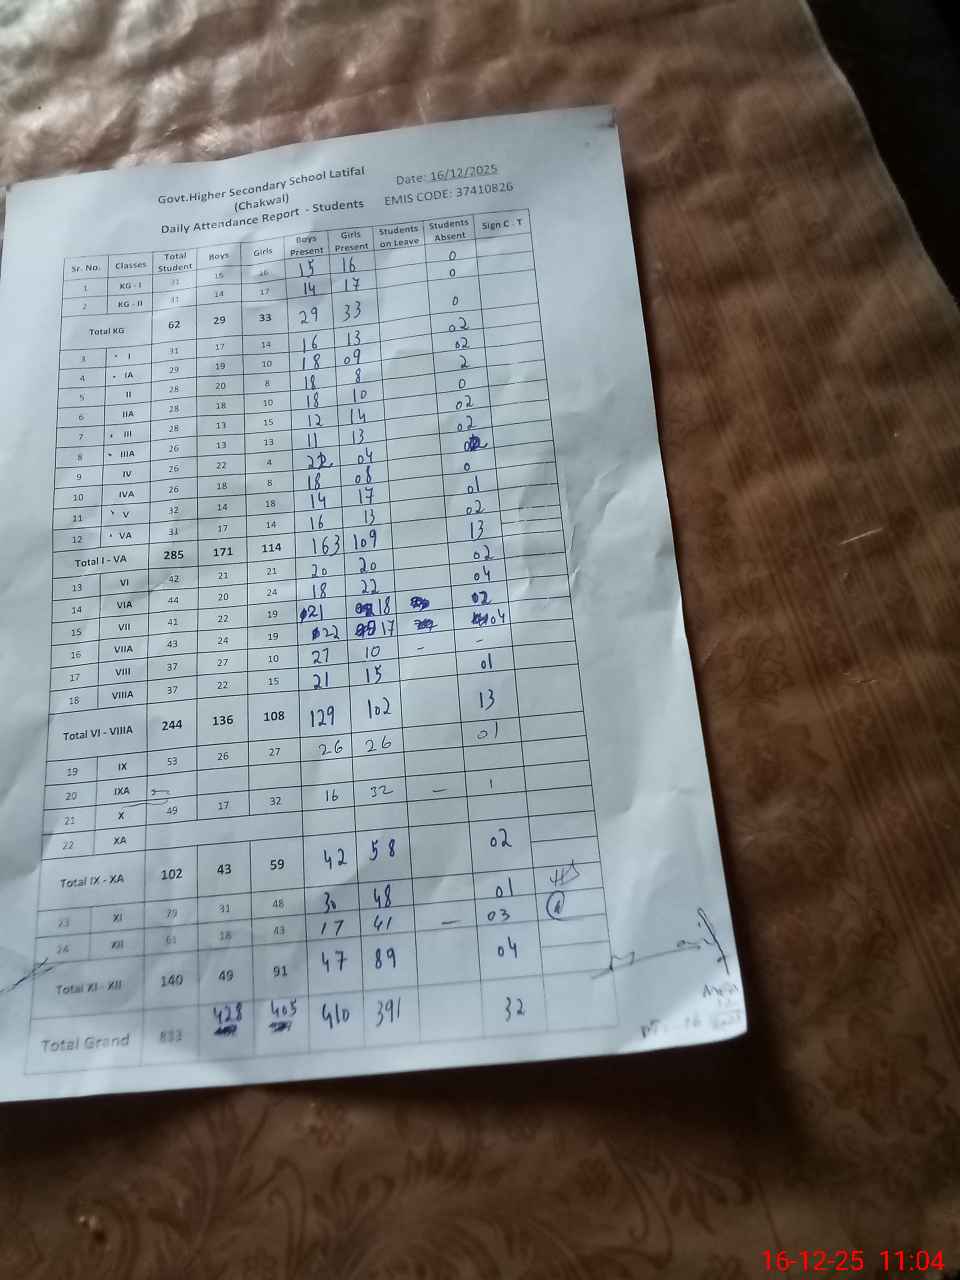 Govt.Higher Secondary School Latifal
(Chakwal)
Daily Attendance Report - Students
Date: 16/12/2025
EMIS CODE: 37410826
Sr. No. Classes Total Student Boys Girls Boys Present Girls Present Students on Leave Students Absent Sign C - T
1 KG - I 31 15 16 15 16 0
2 KG - II 31 14 17 14 17 0
Total KG 62 29 33 29 33 0
3 I 31 17 14 16 13 02
4 IA 29 19 10 18 09 02
5 II 28 20 8 18 8 2
6 IIA 28 18 10 18 10 0
7 III 28 13 15 12 14 02
8 IIIA 26 13 13 11 13 02
9 IV 26 22 4 22 04
10 IVA 26 18 8 18 08 0
11 V 32 14 18 14 17 01
12 VA 31 17 14 16 13 02
Total I - VA 285 171 114 163 109 13
13 VI 42 21 21 20 20 02
14 VIA 44 20 24 18 22 04
15 VII 41 22 19 21 18 02
16 VIIA 43 24 19 22 17 04
17 VIII 37 27 10 27 10 - -
18 VIIIA 37 22 15 21 15 01
Total VI - VIIIA 244 136 108 129 102 13
19 IX 53 26 27 26 26 01
20 IXA
21 X 49 17 32 16 32 - 1
22 XA
Total IX - XA 102 43 59 42 58 02
23 XI 79 31 48 30 48 01
24 XII 61 18 43 17 41 - 03
Total XI - XII 140 49 91 47 89 04
Total Grand 833 428 405 410 391 32
16-12-25 11:04